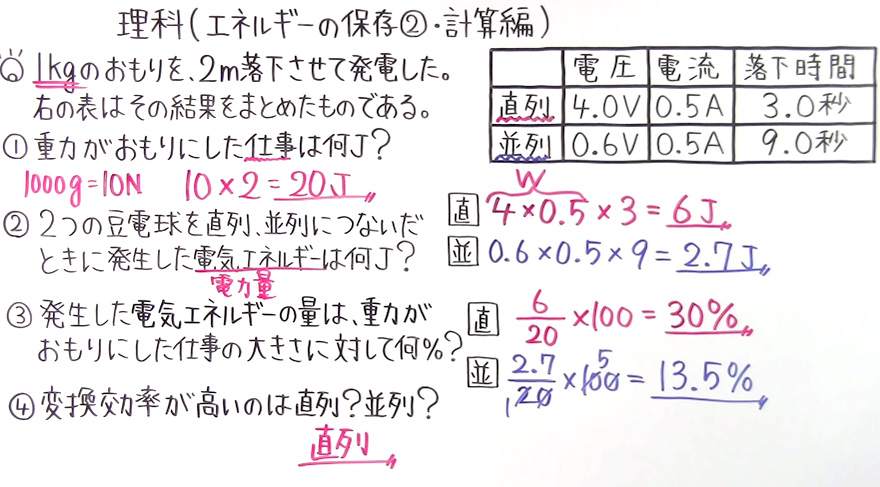 理科(エネルギーの保存②・計算編)
1kgのおもりを、2m落下させて発電した。
右の表はその結果をまとめたものである。
電圧 電流 落下時間
直列 4.0V 0.5A 3.0秒
並列 0.6V 0.5A 9.0秒
①重力がおもりにした仕事は何J?
1000g=10N 10×2=20J
②2つの豆電球を直列、並列につないだ
ときに発生した電気エネルギーは何J?
電力量
W
直 4×0.5×3=6J
並 0.6×0.5×9=2.7J
③発生した電気エネルギーの量は、重力が
おもりにした仕事の大きさに対して何%?
直 6/20×100=30%
並 2.7/20×100=13.5%
1 5
④変換効率が高いのは直列?並列?
直列